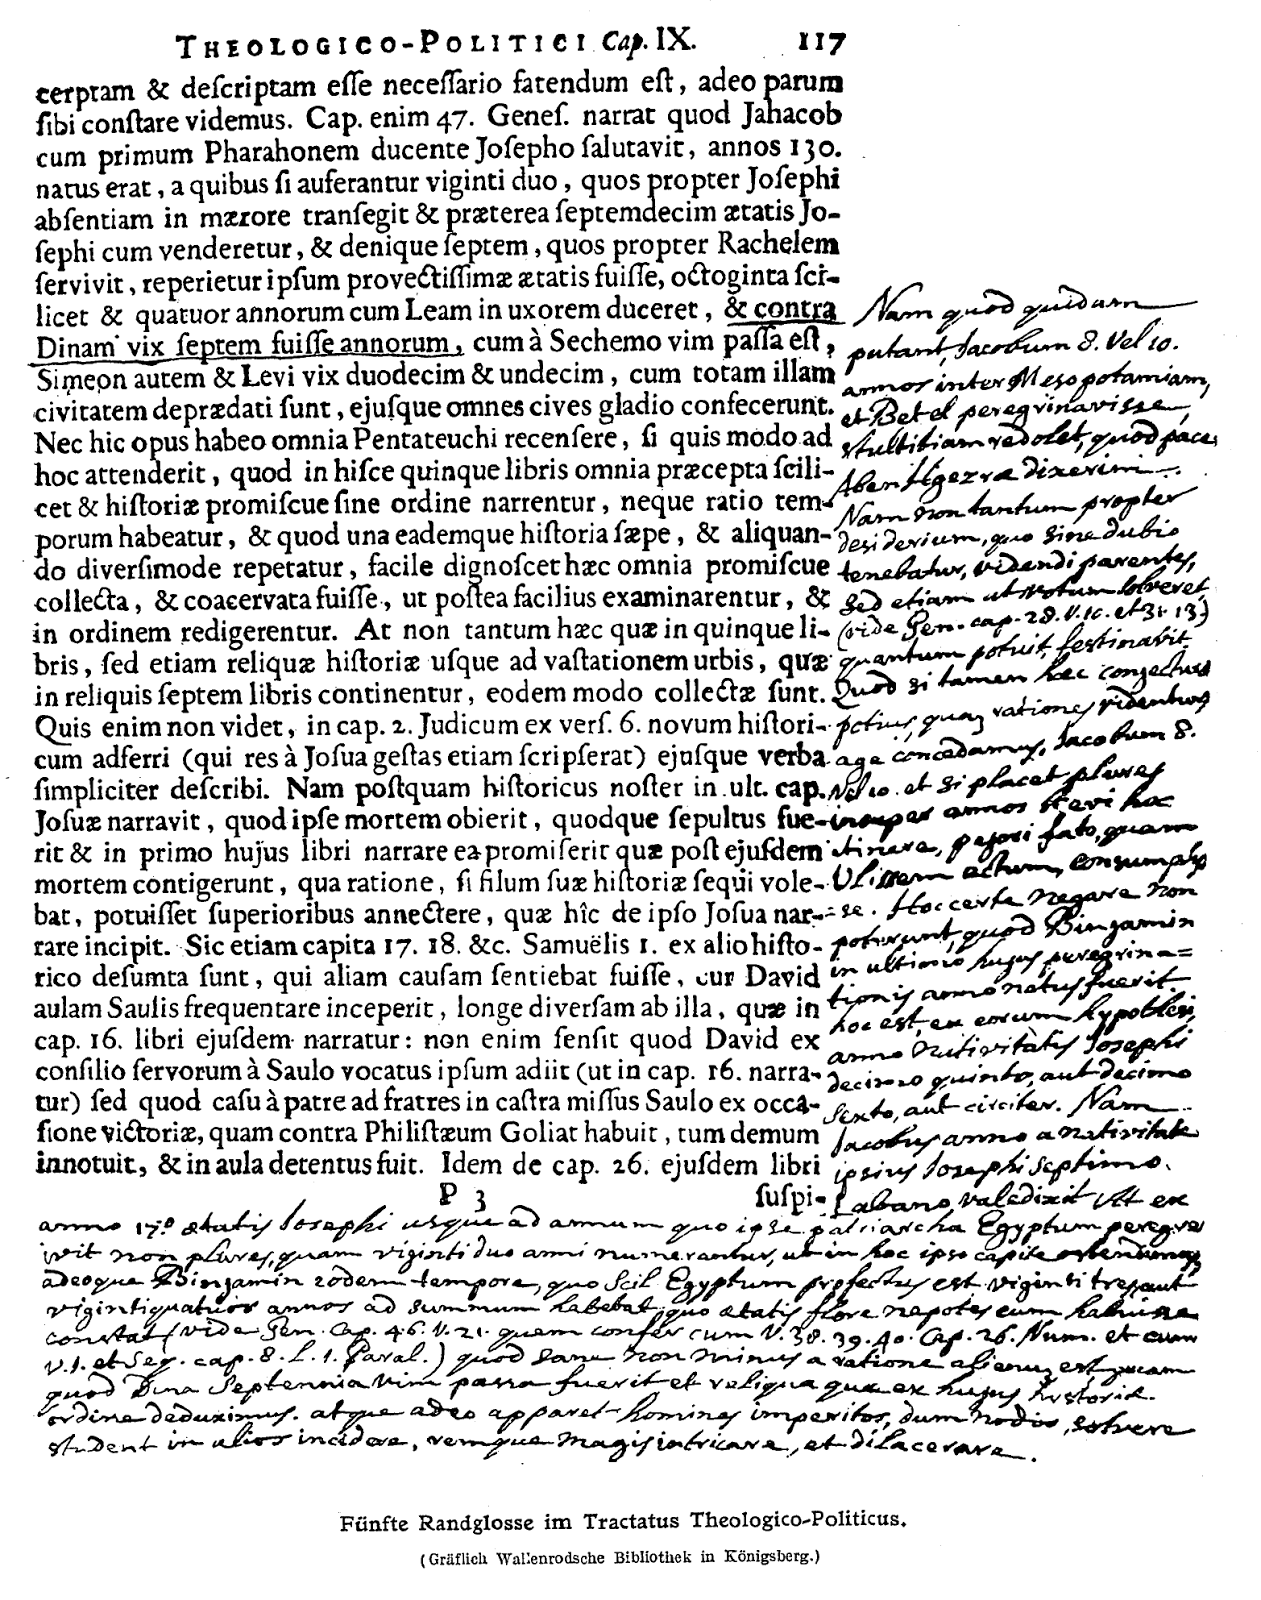 THEOLOGICO-POLITICI Cap. IX. 117
cerptam & deſcriptam eſſe neceſſario fatendum eſt, adeo parum
ſibi conſtare videmus. Cap. enim 47. Geneſ. narrat quod Jahacob
cum primum Pharahonem ducente Joſepho ſalutavit, annos 130.
natus erat, a quibus ſi auferantur viginti duo, quos propter Joſephi
abſentiam in mærore tranſegit & præterea ſeptemdecim ætatis Jo-
ſephi cum venderetur, & denique ſeptem, quos propter Rachelem
ſervivit, reperietur ipſum provectiſſimæ ætatis fuiſſe, octoginta ſci-
licet & quatuor annorum cum Leam in uxorem duceret, & contra
Dinam vix ſeptem fuiſſe annorum, cum à Sechemo vim paſſa eſt,
Simeon autem & Levi vix duodecim & undecim, cum totam illam
civitatem deprædati ſunt, ejuſque omnes cives gladio confecerunt.
Nec hic opus habeo omnia Pentateuchi recenſere, ſi quis modo ad
hoc attenderit, quod in hiſce quinque libris omnia præcepta ſcili-
cet & hiſtoriæ promiſcue ſine ordine narrentur, neque ratio tem-
porum habeatur, & quod una eademque hiſtoria ſæpe, & aliquan-
do diverſimode repetatur, facile dignoſcet hæc omnia promiſcue
collecta, & coacervata fuiſſe, ut poſtea facilius examinarentur, &
in ordinem redigerentur. At non tantum hæc quæ in quinque li-
bris, ſed etiam reliquæ hiſtoriæ uſque ad vaſtationem urbis, quæ
in reliquis ſeptem libris continentur, eodem modo collectæ ſunt.
Quis enim non videt, in cap. 2. Judicum ex verſ. 6. novum hiſtori-
cum adferri (qui res à Joſua geſtas etiam ſcripſerat) ejuſque verba
ſimpliciter deſcribi. Nam poſtquam hiſtoricus noſter in ult. cap.
Joſuæ narravit, quod ipſe mortem obierit, quodque ſepultus fue-
rit & in primo hujus libri narrare ea promiſerit quæ poſt ejuſdem
mortem contigerunt, qua ratione, ſi filum ſuæ hiſtoriæ ſequi vole-
bat, potuiſſet ſuperioribus annectere, quæ hîc de ipſo Joſua nar-
rare incipit. Sic etiam capita 17. 18. &c. Samuëlis 1. ex alio hiſto-
rico deſumta ſunt, qui aliam cauſam ſentiebat fuiſſe, cur David
aulam Saulis frequentare inceperit, longe diverſam ab illa, quæ in
cap. 16. libri ejuſdem narratur: non enim ſenſit quod David ex
conſilio ſervorum à Saulo vocatus ipſum adiit (ut in cap. 16. narra-
tur) ſed quod caſu à patre ad fratres in caſtra miſſus Saulo ex occa-
ſione victoriæ, quam contra Philiſtæum Goliat habuit, tum demum
innotuit, & in aula detentus fuit. Idem de cap. 26. ejuſdem libri
P 3 ſuſpi-
Nam quod quidam
putant, Jacobum 8. vel 10.
annos inter Mesopotamiam,
et Betel peregrinavisse,
stultitiam redolet, quod pace
Aben Hgezræ dixerim.
Nam non tantum propter
desiderium, quo sine dubio
tenebatur, videndi parentes,
sed etiam ut votum solveret
(vide Gen. cap. 28. v. 10. et 31 13)
quantum potuit, festinavit.
Quod si tamen hæc conjectura
potius, quam rationes videntur,
age concedamus, Jacobum 8.
vel 10. et si placet plures
insuper annos brevi hoc
itinere, pejori fato, quam
Ulissem actum, consumpsis
=se. Hoc certe negare non
poterunt, quod Binjamin
in ultimo hujus peregrina=
tionis anno natus fuerit.
hoc est, ex eorum hypothesi,
anno nativitatis Josephi
decimo quinto, aut decimo
sexto, aut circiter. Nam
Jacobus anno a nativitate
ipsius Josephi septimo.
Labano valedixit At ex
anno 17.º ætatis Josephi usque ad annum quo ipse patriarcha Egyptum peregre
ivit non plures, quam viginti duo anni numerantur, ut in hoc ipso capite ostendimus
adeoque Binjamin eodem tempore, quo scil Egyptum profectus est viginti tres aut
viginti quatuor annos ad summum habebat, quo ætatis flore nepotes eum habuisse
constat (vide Gen. Cap. 46. v. 21. quem confer cum v. 38. 39. 40. Cap. 26. Num. et cum
v. 1. et seq. cap. 8. L. 1. Paral.) quod sane non minus a ratione alienum est quam
quod Dina septennis vim passa fuerit et reliqua quæ ex hujus historiæ
ordine deduximus. atque adeo apparet homines imperitos, dum nodos solvere
student in alios incidere, remque magis intricare, et dilacerare.
Fünfte Randglosse im Tractatus Theologico-Politicus.
(Gräflich Wallenrodsche Bibliothek in Königsberg.)